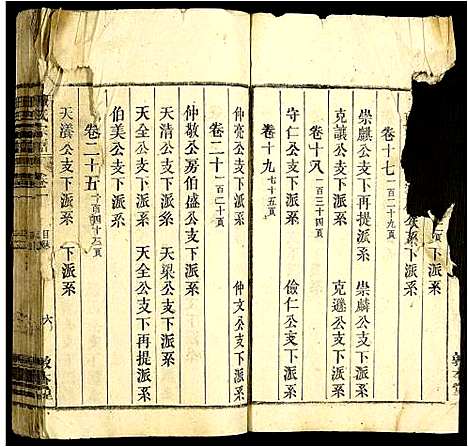 下派系
下派系
卷十七 一百二十九頁
崇麒公支下再提派系 崇麟公支下派系
克讓公支下派系 克遜公支下派系
卷十八 一百三十四頁
守仁公支下派系 儉仁公支下派系
卷十九 七十五頁
仲亮公支下派系 仲文公支下派系
卷二十 一百二十頁
仲敬公房伯盛公支下派系
天清公支下派系 天梁公支下派系
天全公支下派系 天全公支下再提派系
伯美公支下派系
卷二十五 一百四十三頁
天漢公支下派系 下派系
目錄
六
敦本堂